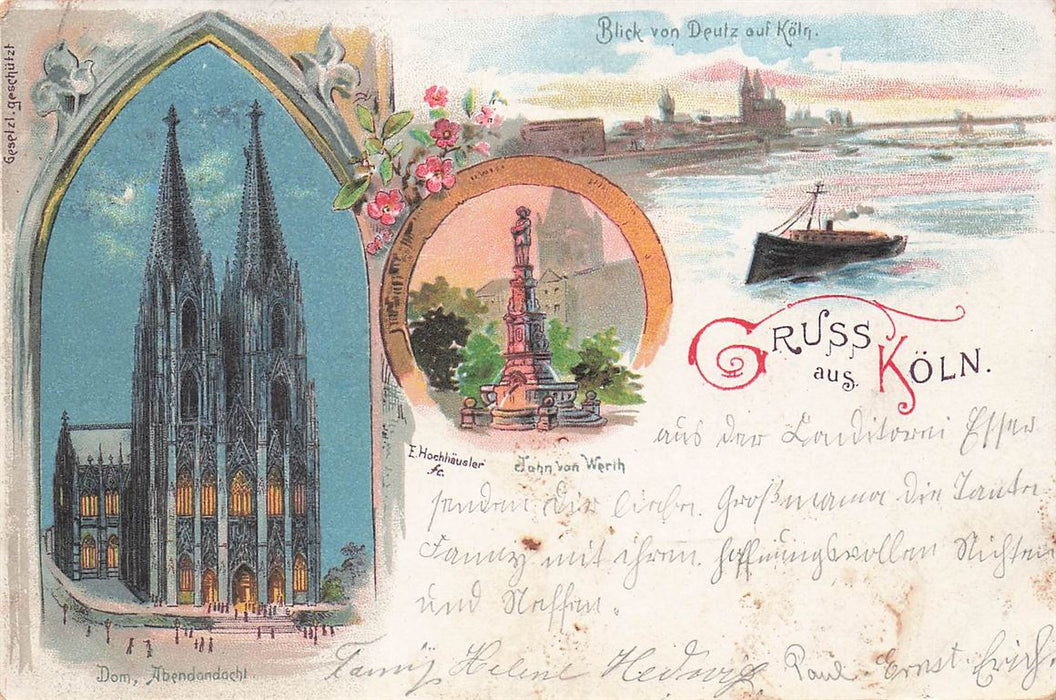 Gesetzl. geschützt
Blick von Deutz auf Köln.
GRUSS
aus KÖLN.
E. Hochhäusler
fc.
Jahn van Werth
Dom, Abendandacht
aus der Conditorei Esser
senden Dir liebe Großmama die Tante
Fanny mit ihren hoffnungsvollen Nichten
und Neffen.
Fanny Helene Hedwig Paul Ernst Erich.